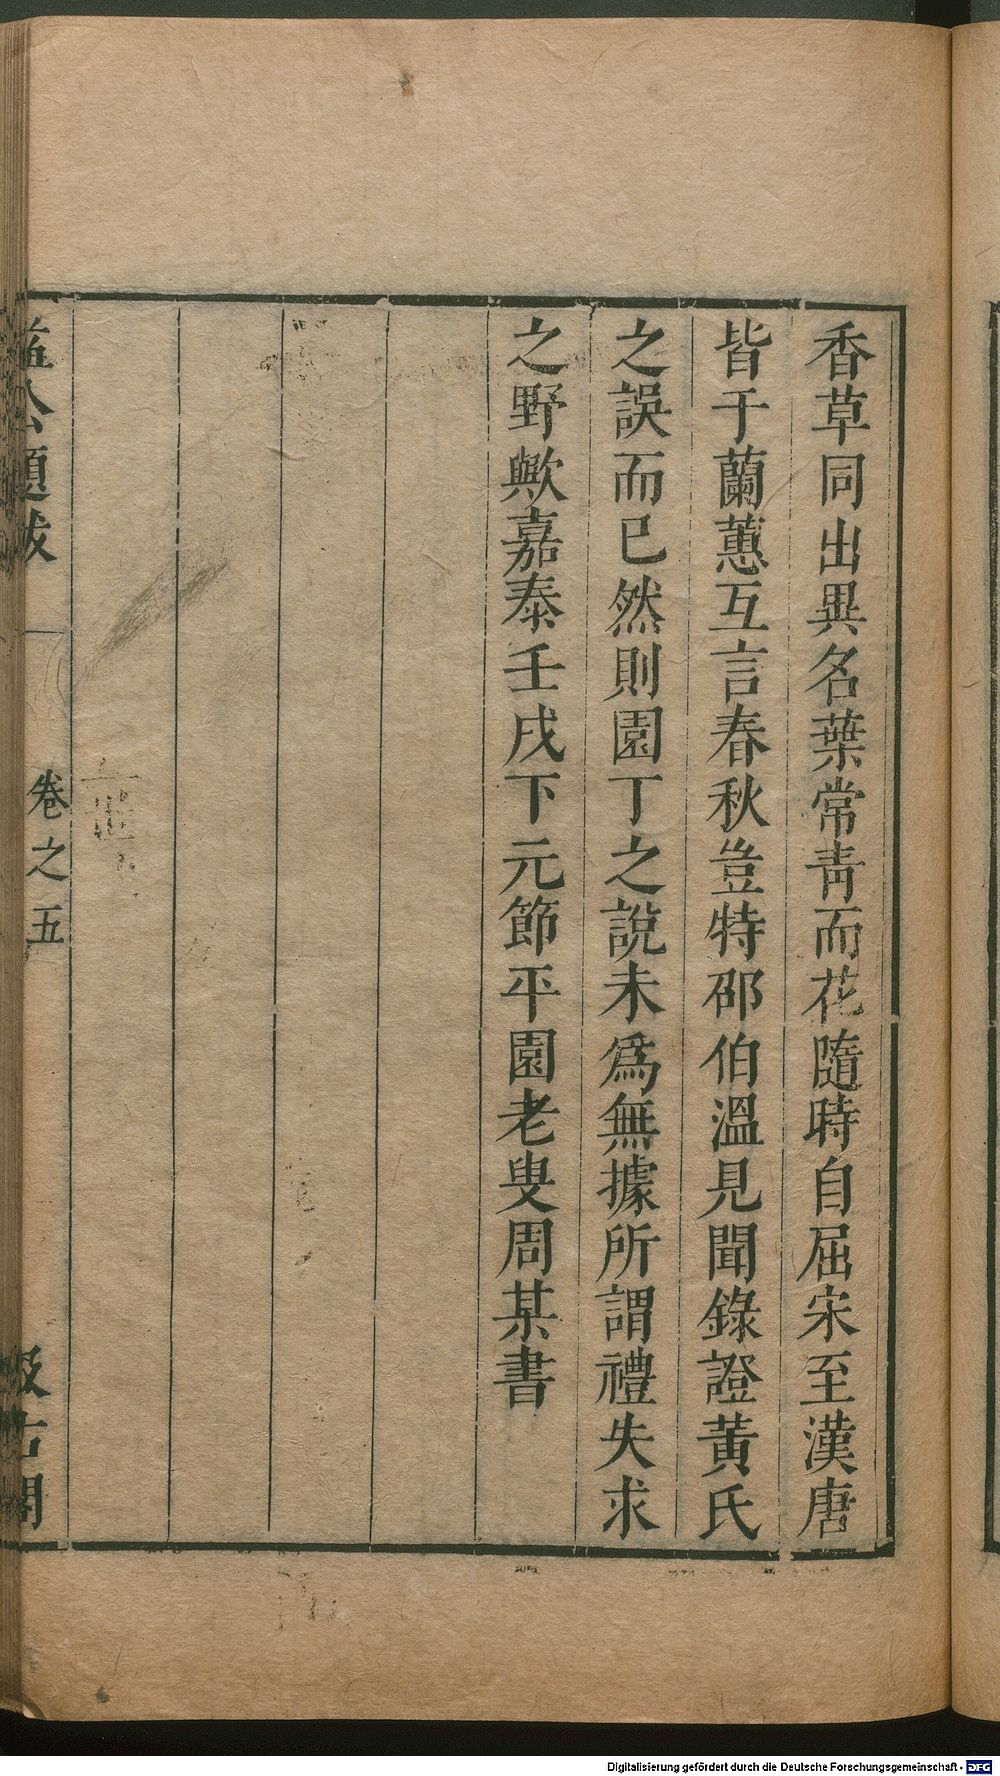 香草同出異名葉常靑而花隨時自屈宋至漢唐
皆于蘭蕙互言春秋豈特邵伯溫見聞錄證黃氏
之誤而已然則園丁之說未爲無據所謂禮失求
之野歟嘉泰壬戌下元節平園老叟周某書
益公題跋
卷之五
汲古閣
Digitalisierung gefördert durch die Deutsche Forschungsgemeinschaft - DFG